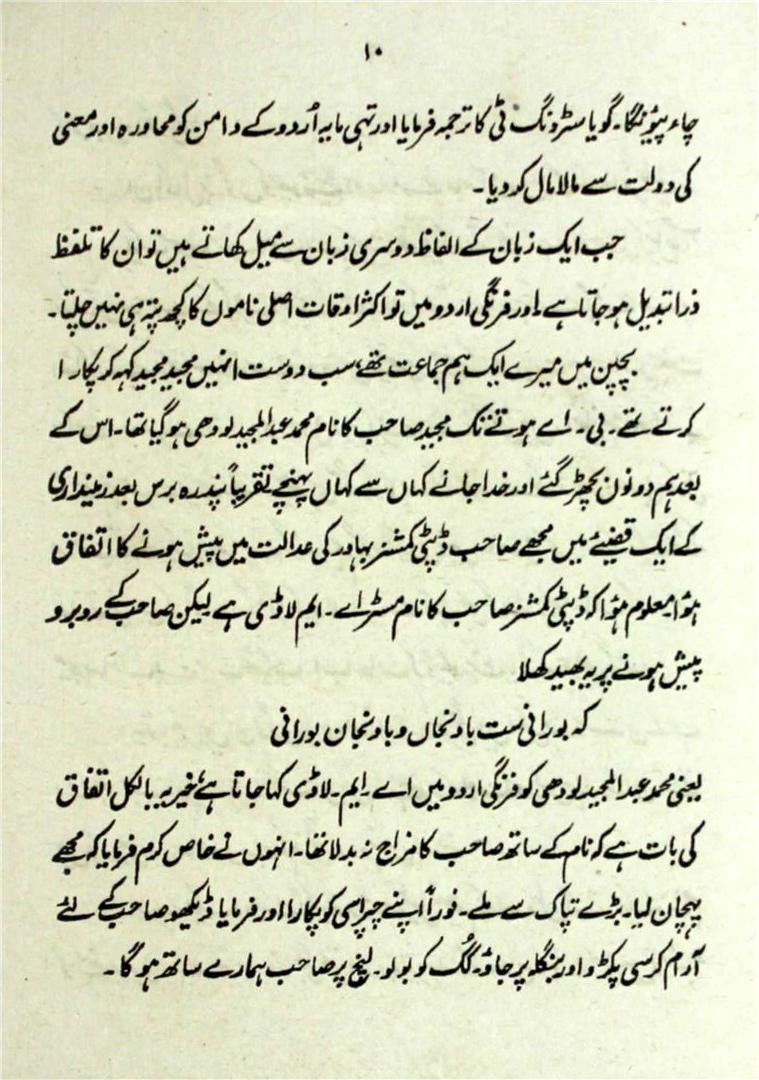 ۱۰
چاء پیؤنگا۔ گویا سٹرونگ ٹی کا ترجمہ فرمایا اور تہی مایہ اُردو کے دامن کو محاورہ اور معنی
کی دولت سے مالا مال کر دیا۔
جب ایک زبان کے الفاظ دوسری زبان سے میل کھاتے ہیں تو ان کا تلفظ
ذرا تبدیل ہو جاتا ہے۔ اور فرنگی اردو میں تو اکثر اوقات اصلی ناموں کا کچھ پتہ ہی نہیں چلتا۔
بچپن میں میرے ایک ہم جماعت تھے، سب دوست انہیں مجید مجید کہہ کر پکارا
کرتے تھے۔ بی۔ اے ہوتے تک مجید صاحب کا نام محمد عبدالمجید لودھی ہو گیا تھا۔ اس کے
بعد ہم دونوں بچھڑ گئے اور خدا جانے کہاں سے کہاں پہنچے تقریباً پندرہ برس بعد زمینداری
کے ایک قضیئے میں مجھے صاحب ڈپٹی کمشنر بہادر کی عدالت میں پیش ہونے کا اتفاق
ہؤا معلوم ہؤا کہ ڈپٹی کمشنر صاحب کا نام مسٹر اے۔ ایم لاڈی ہے لیکن صاحب کے روبرو
پیش ہونے پر یہ بھید کھلا
کہ بورانی ست بادنجاں و بادنجان بورانی
یعنی محمد عبدالمجید لودھی کو فرنگی اردو میں اے۔ ایم۔ لاڈی کہا جاتا ہے، خیر یہ بالکل اتفاق
کی بات ہے کہ نام کے ساتھ صاحب کا مزاج نہ بدلا تھا۔ انہوں نے خاص کرم فرمایا کہ مجھے
پہچان لیا۔ بڑے تپاک سے ملے۔ فوراً اپنے چپراسی کو پکارا اور فرمایا ڈیکھو صاحب کے لئے
آرام کرسی پکڑو اور بنگلہ پر جاؤ۔ کُک کو بولو۔ لنچ پر صاحب ہمارے ساتھ ہو گا۔